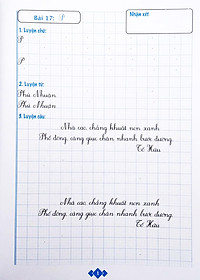 Bài 17: P
Nhận xét
1. Luyện chữ:
P
P
2. Luyện từ:
Phú Nhuận
Phú Nhuận
3. Luyện câu:
Nhà cao chẳng khuất non xanh
Phố đông, càng giục chân nhanh bước đường.
Tố Hữu
Nhà cao chẳng khuất non xanh
Phố đông, càng giục chân nhanh bước đường.
Tố Hữu